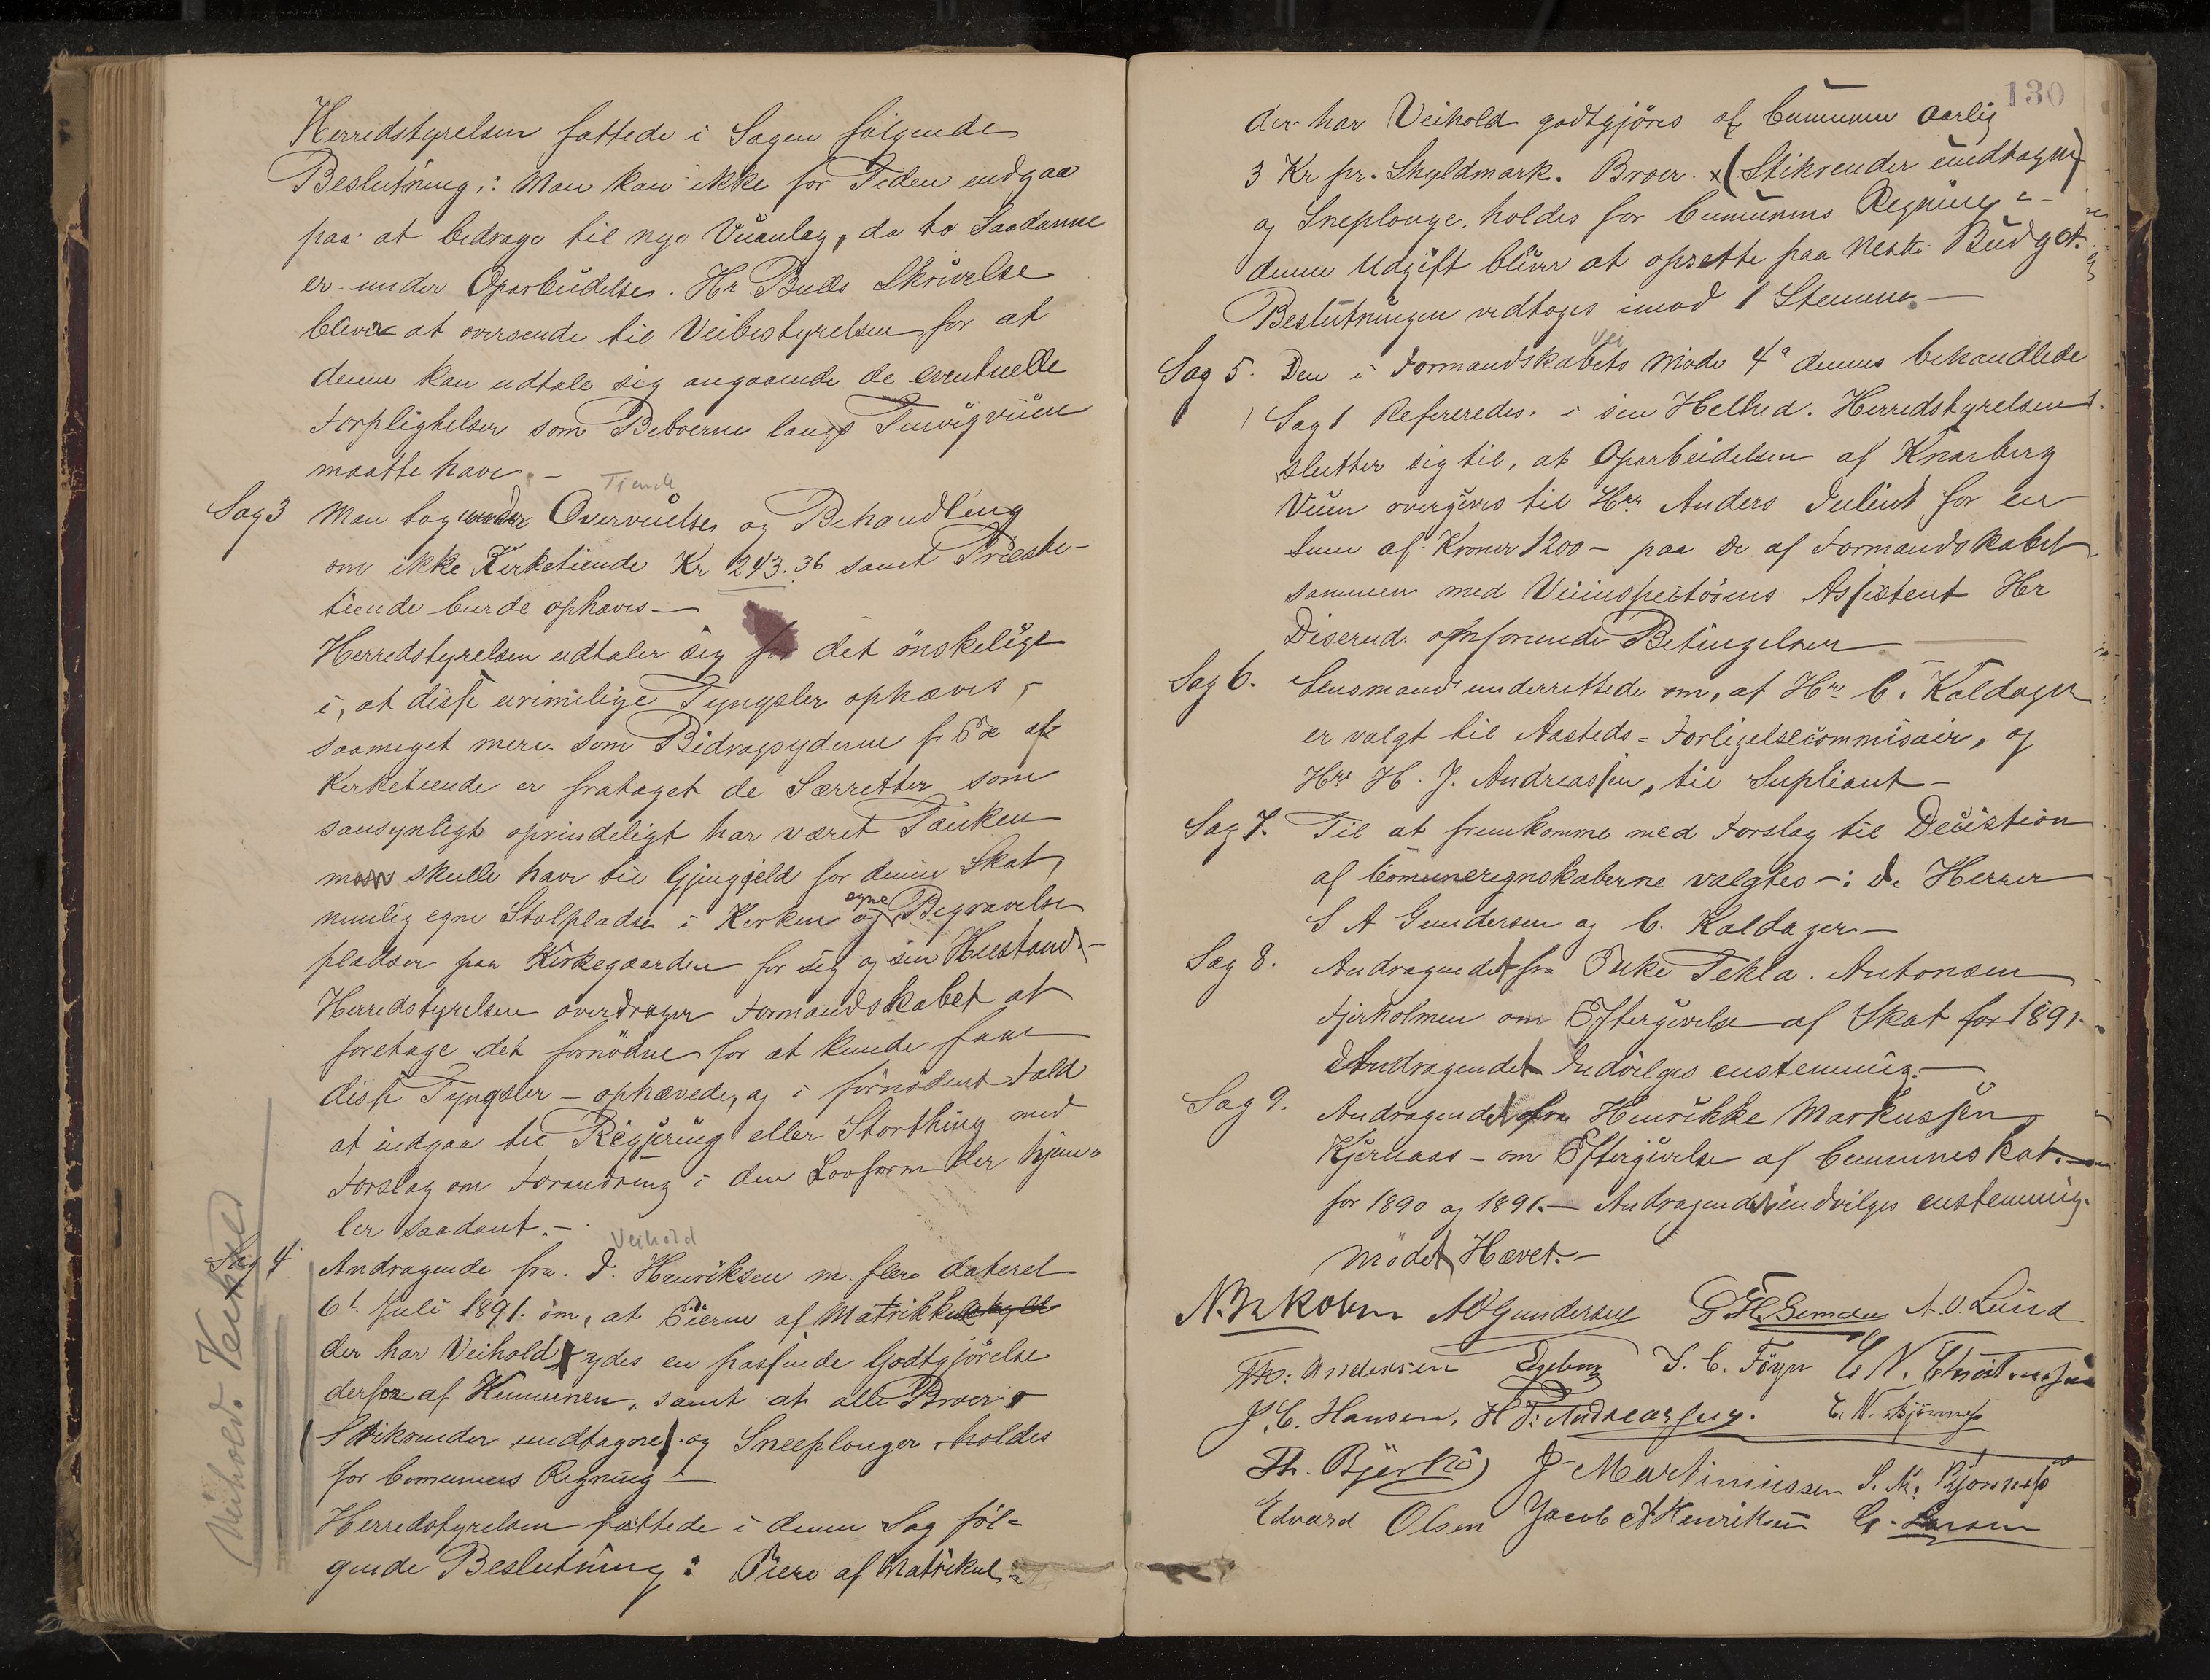 Herredstyrelsen fattede i Sagen følgende
Beslutning: Man kan ikke for Tiden indgaa
paa at bidrage til nye Veianlæg, da to Saadanne
er under Oparbeidelse. Hr Buds Skrivelse
bliver at oversende til Veibestyrelsen for at
denne kan udtale sig angaaende de eventuelle
Forpligtelser som Beboerne langs veien
maatte have. –
Tiende
Sag 3 Man tog under Overveielse og Behandling
om ikke Kirketiende Kr 243.36 samt Præste-
tiende burde ophæves –
Herredstyrelsen udtaler sig for det ønskelige
i, at disse urimelige Tyngsler ophæves,
saameget mere som Bidragsyderne af
Kirketiende er frataget de Særretter som
sansynligt oprindeligt har været Tanken
man skulle have til Gjengjeld for denne Skat,
nemlig egne Stolpladse i Kirken og egne Begravelse
pladser paa Kirkegaarden for sig og sin Husstand. –
Herredstyrelsen overdrager Formandskabet at
foretage det fornødne for at kunde faae
disse Tyngsler – ophævede, og i fornødent Fald
at indgaa til Regjering eller Storthing med
Forslag om Forandring i den Lovform der hjem-
ler saadant. –
Veihold
Sag 4 Andragende fra J. Henriksen m. flere dateret
6t Juli 1891. om, at Eierne af Matrikkelskyld
der har Veihold ydes en passende Godtgjørelse
derfor af Kommunen, samt at alle Broer
(Stikrender undtagne) og Sneeplouger holdes
for Communens Regning –
Herredstyrelsen fattede i denne Sag føl-
gende Beslutning: Eiere af Matrikul-
Veihold. Veihold
130
der har Veihold godtgjøres af Communen aarlig
3 Kr pr. Skyldmark. Broer x (Stikrender undtagne)
og Sneplouge holdes for Communens Regning –
denne Udgift bliver at opsette paa Neste Budget.
Beslutningen vedtoges imod 1 Stemme. –
Vei
Sag 5. Den i Formandskabets Møde 4de dennes behandlede
Sag 1 Refereredes i sin Helhed. Herredstyrelsen
slutter sig til, at Oparbeidelsen af Knarberg
Veien overgives til Hrr Anders for en
Sum af Kroner 1200 – paa de af Formandskabet
sammen med Veiinspectørens Assistent Hr
Diserud opførende Betingelser
Sag 6. Lensmand underrettede om, at Hr C. Kaldager
er valgt til Aasteds-Forligelsecommisair, og
Hr H. J. Andreassen, til Supleant –
Sag 7. Til at fremkomme med Forslag til Decistion
af Comuneregnskaberne valgtes –: de Herrer
S A Gundersen og C. Kaldager –
Sag 8. Andragendet fra Enke Tekla Antonsen
Fjerholmen om Eftergivelse af Skat for 1891.
Andragendet Indvilges enstemmig. –
Sag 9. Andragendet fra Henrikke Markussen
Kjernaas – om Eftergivelse af Communeskat
for 1890 og 1891. – Andragendet indvilges enstemmig.
Mødet Hævet. –
A Gundersen A. O. Lund
Th: Andersen S. C. Föyn
J. C. Hansen, H J: Andreassen.
Th. Bjerkø J Martiniussen
Edvard Olsen Jacob A Henriksen G. Larsen